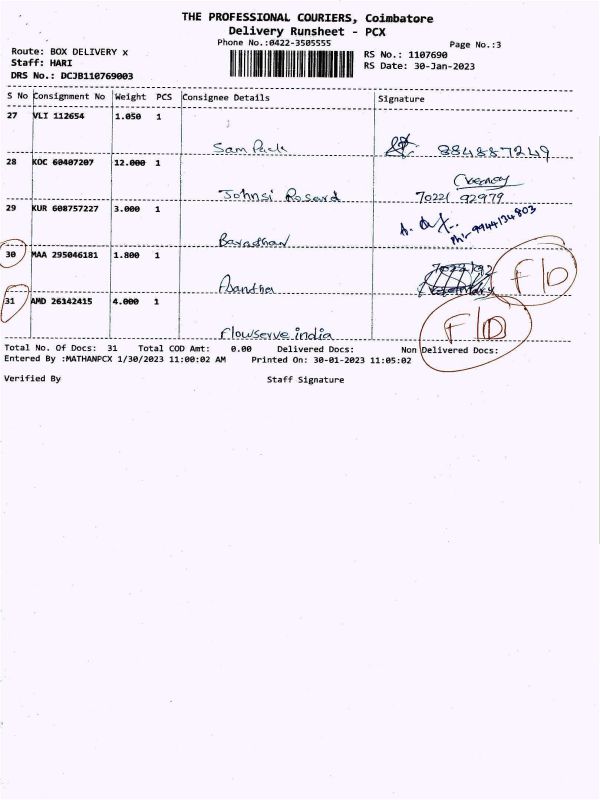 THE PROFESSIONAL COURIERS, Coimbatore
Delivery Runsheet - PCX
Phone No.:0422-3505555
Page No.:3
Route: BOX DELIVERY x
Staff: HARI
DRS No.: DCJB110769003
RS No.: 1107690
RS Date: 30-Jan-2023
S No Consignment No Weight PCS Consignee Details Signature
27 VLI 112654 1.050 1
Sam Pack 884887249
28 KOC 60407207 12.000 1
Johnsi Rosard 70221 92979
29 KUR 608757227 3.000 1
Ph:- 9944134803
30 MAA 295046181 1.800 1
F/D
31 AMD 26142415 4.000 1
Flowserve india F/D
Total No. Of Docs: 31 Total COD Amt: 0.00 Delivered Docs: Non Delivered Docs:
Entered By :MATHANPCX 1/30/2023 11:00:02 AM Printed On: 30-01-2023 11:05:02
Verified By Staff Signature